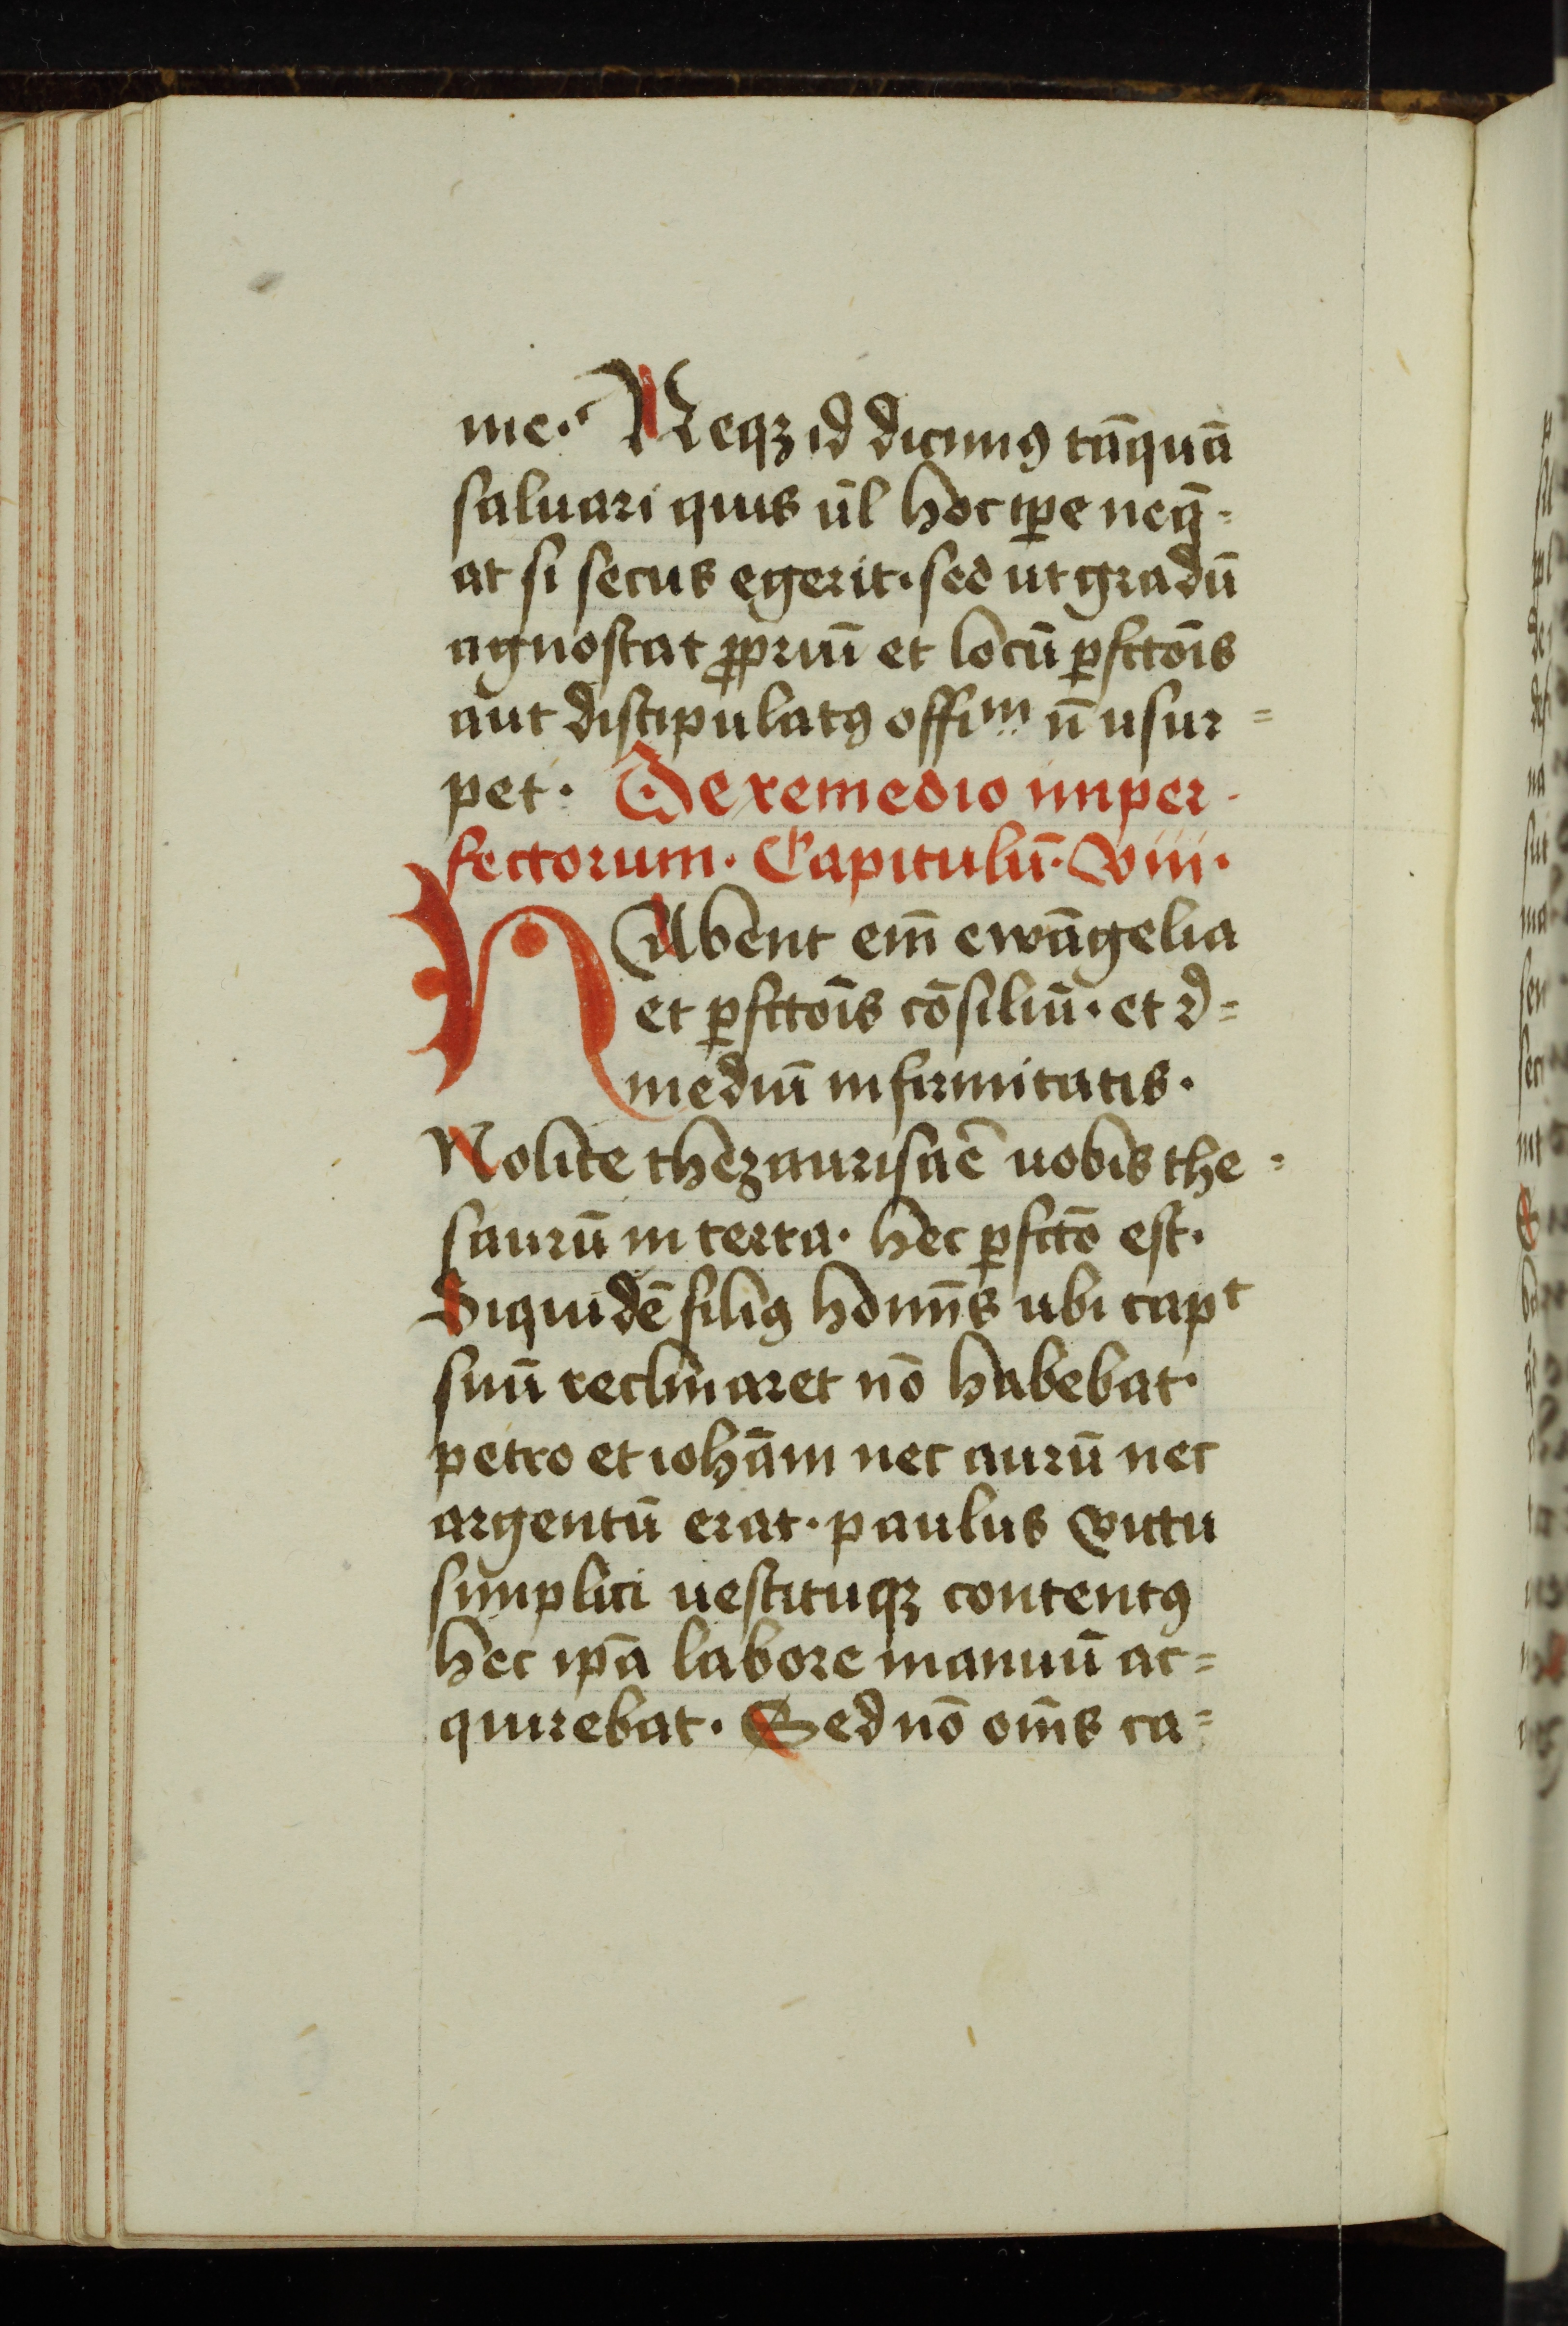 me. Neqꝫ id dicimꝰ tā̄quā
saluari quis ul̄ hoc ip̄e neq̄=
at si secus egerit. sed ut gradū
agnoscat ꝓpriū et locū ꝑfctōis
aut discipulatꝰ offiᵐ n̄ usur=
pet. De remedio imper-
fectorum. Capitulū. viii.
HAbent em̄ ewāgelia
et ꝑfctōis cōsiliū. et r̄=
mediū infirmitatis.
Nolite thezaurisaē uobis the=
saurū in terra. hec ꝑfctō est.
Siquidē filiꝰ hoīnis ubi capᵗ
suū reclinaret nō habebat.
petro et iohāni nec aurū nec
argentū erat. paulus victu
simplici uestituqꝫ contentꝰ
hec ip̄a labore manuū ac=
quirebat. Sed nō om̄s ca=